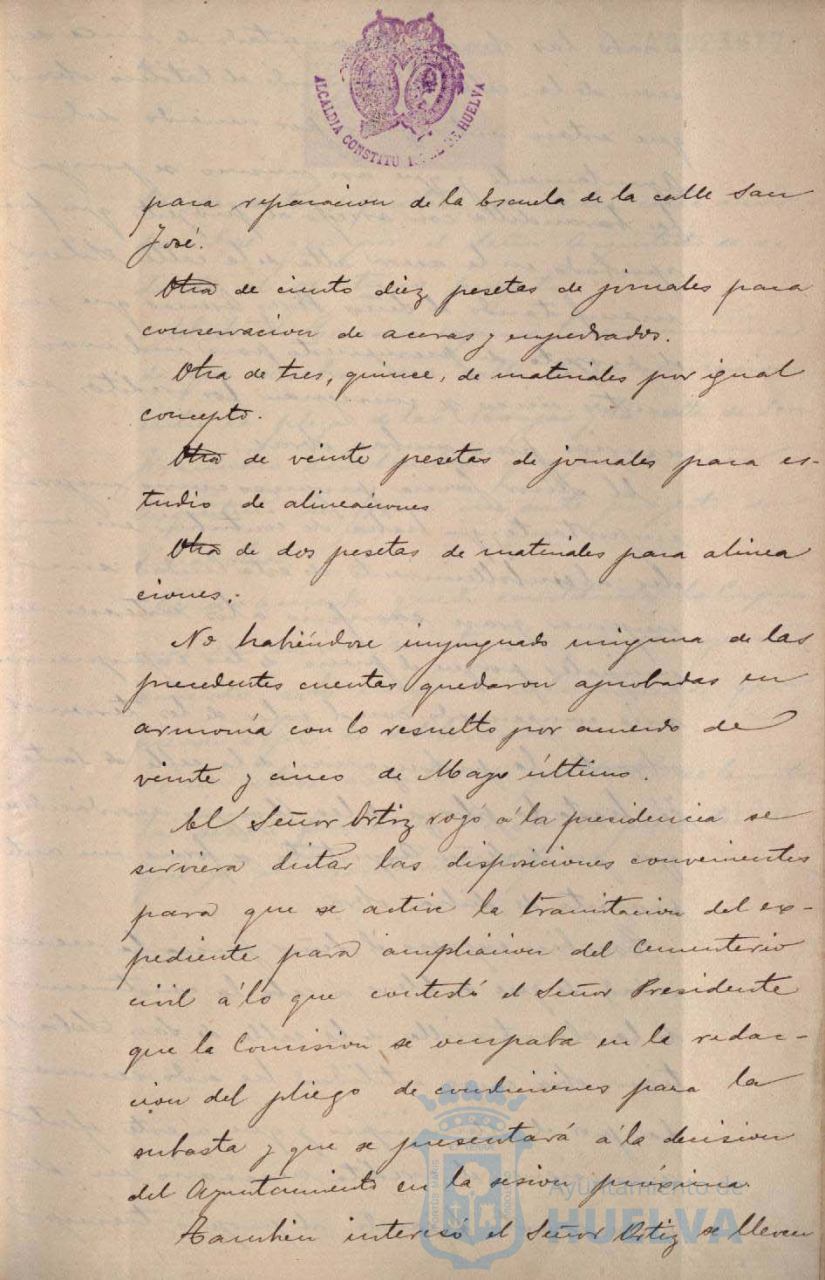 ALCALDIA CONSTITU L DE HUELVA
para reparacion de la Escuela de la calle San
José.
Otra de ciento diez pesetas de jornales para
conservacion de aceras y empedrados.
Otra de tres, quince, de materiales por igual
concepto.
Otra de veinte pesetas de jornales para es-
tudio de alineaciones
Otra de dos pesetas de materiales para alinea
ciones.
No habiéndose impugnado ninguna de las
precedentes cuentas quedaron aprobadas en
armonía con lo resuelto por acuerdo de
veinte y cinco de Mayo último.
El Señor Ortiz rogó á la presidencia se
sirviera dictar las disposiciones convenientes
para que se active la tramitacion del ex-
pediente para ampliacion del Cementerio
civil á lo que contestó el Señor Presidente
que la Comision se ocupaba en la redac-
cion del pliego de condiciones para la
subasta y que se presentará á la decision
del Ayuntamiento en la sesion próxima.
Tambien interesó el Señor Ortiz se lleven
Ayuntamiento de
HUELVA